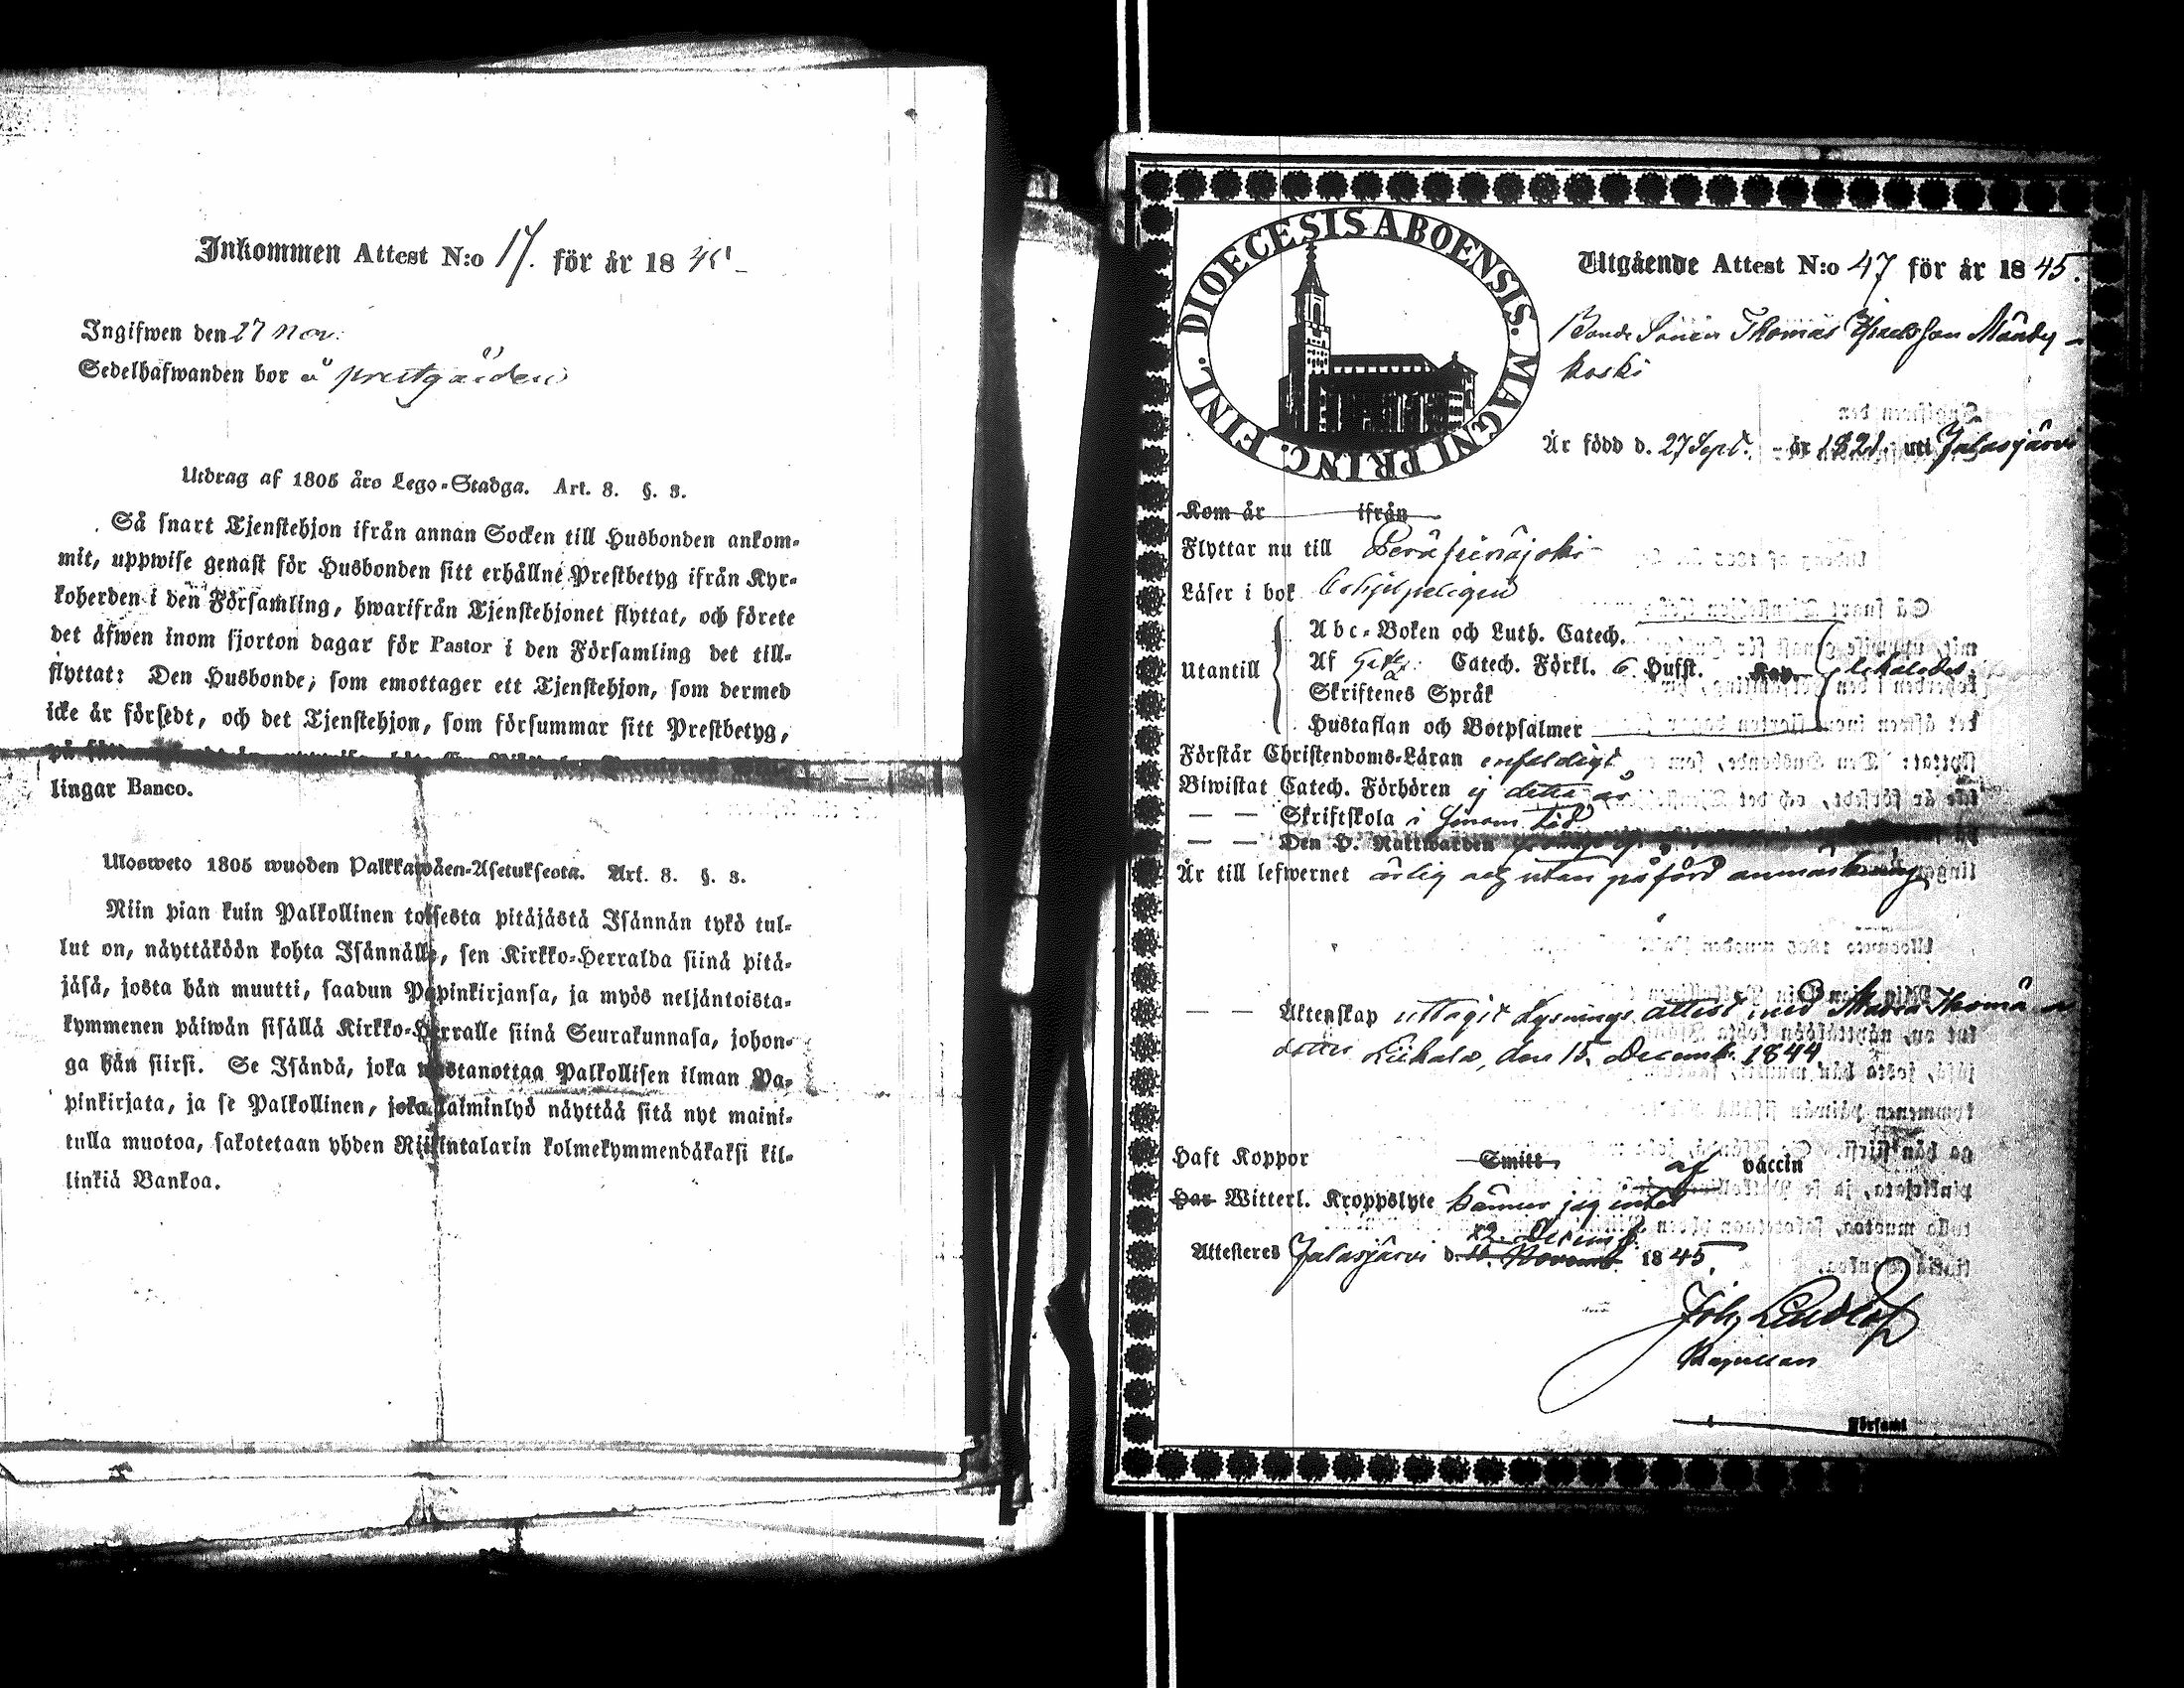 Inkommen Attest N:o 17. för år 18
Ingifwen den 27 Nov:
Sedelhafwanden bor å prestgården
Utdrag af 1805 års Lego-Stadga. Art. 8. §. 3.
Så snart Tjenstehjon ifrån annan Socken till Husbonden ankom-
mit, uppwise genast för Husbonden sitt erhållne Prestbetyg ifrån Kyr-
koherden i den Församling, hwarifrån Tjenstehjonet flyttat, och förete
det äfwen inom fjorton dagar för Pastor i den Församling det till-
flyttat: Den Husbonde, som emottager ett Tjenstehjon, som dermed
icke är försedt, och det Tjenstehjon, som försummar sitt Prestbetyg,
på
lingar Banco.
Ulosweto 1805 wuoden Palkkawäen-Asetuksesta. Art. 8. §. 3.
Niin pian kuin Palkollinen toisesta pitäjästä Isännän tykö tul-
lut on, näyttäköön kohta Isännälle, sen Kirkko-Herralda siinä pitä-
jäsä, josta hän muutti, saadun Papinkirjansa, ja myös neljäntoista-
kymmenen päiwän sisällä Kirkko-Herralle siinä Seurakunnasa, johon-
ga hän siirsi. Se Isändä, joka wastanottaa Palkollisen ilman Pa-
pinkirjata, ja se Palkollinen, joka laiminlyö näyttää sitä nyt maini-
tulla muotoa, sakotetaan yhden Riikintalarin kolmekymmendäkaksi kil-
linkiä Bankoa.
DIOECESIS ABOENSIS. MAGNI PRINC. FINL.
Utgående Attest N:o 47 för år 1845.
Bonde Sonen Thomas Mändy-
koski
Är född d. 27 Sept. år 1821 uti Jalasjärvi
Kom år ifrån
Flyttar nu till Peräseinäjoki
Läser i bok behjelpeligen
Utantill
Abc-Boken och Luth. Catech.
Af Catech. Förkl. 6 Hufst. Kap. likaledes.
Skriftenes Språk
Hustaflan och Botpsalmer
Förstår Christendoms-Läran enfaldigt
Biwistat Catech. Förhören ej detta år
— — Skriftskola i sinom tid
— — Den H. Nattwarden
Är till lefwernet ärlig och utan påförd anmärkning
— — Äktenskap uttagit Lysnings attest med Thomä
dotter den 15. Decemb. 1844
Haft Koppor Smitt, af vaccin
Har Witterl. Kroppslyte känner jag intet
12. Decemb.
Attesteres Jalasjärvi d. Novemb. 1845.
Kapellan
Församl